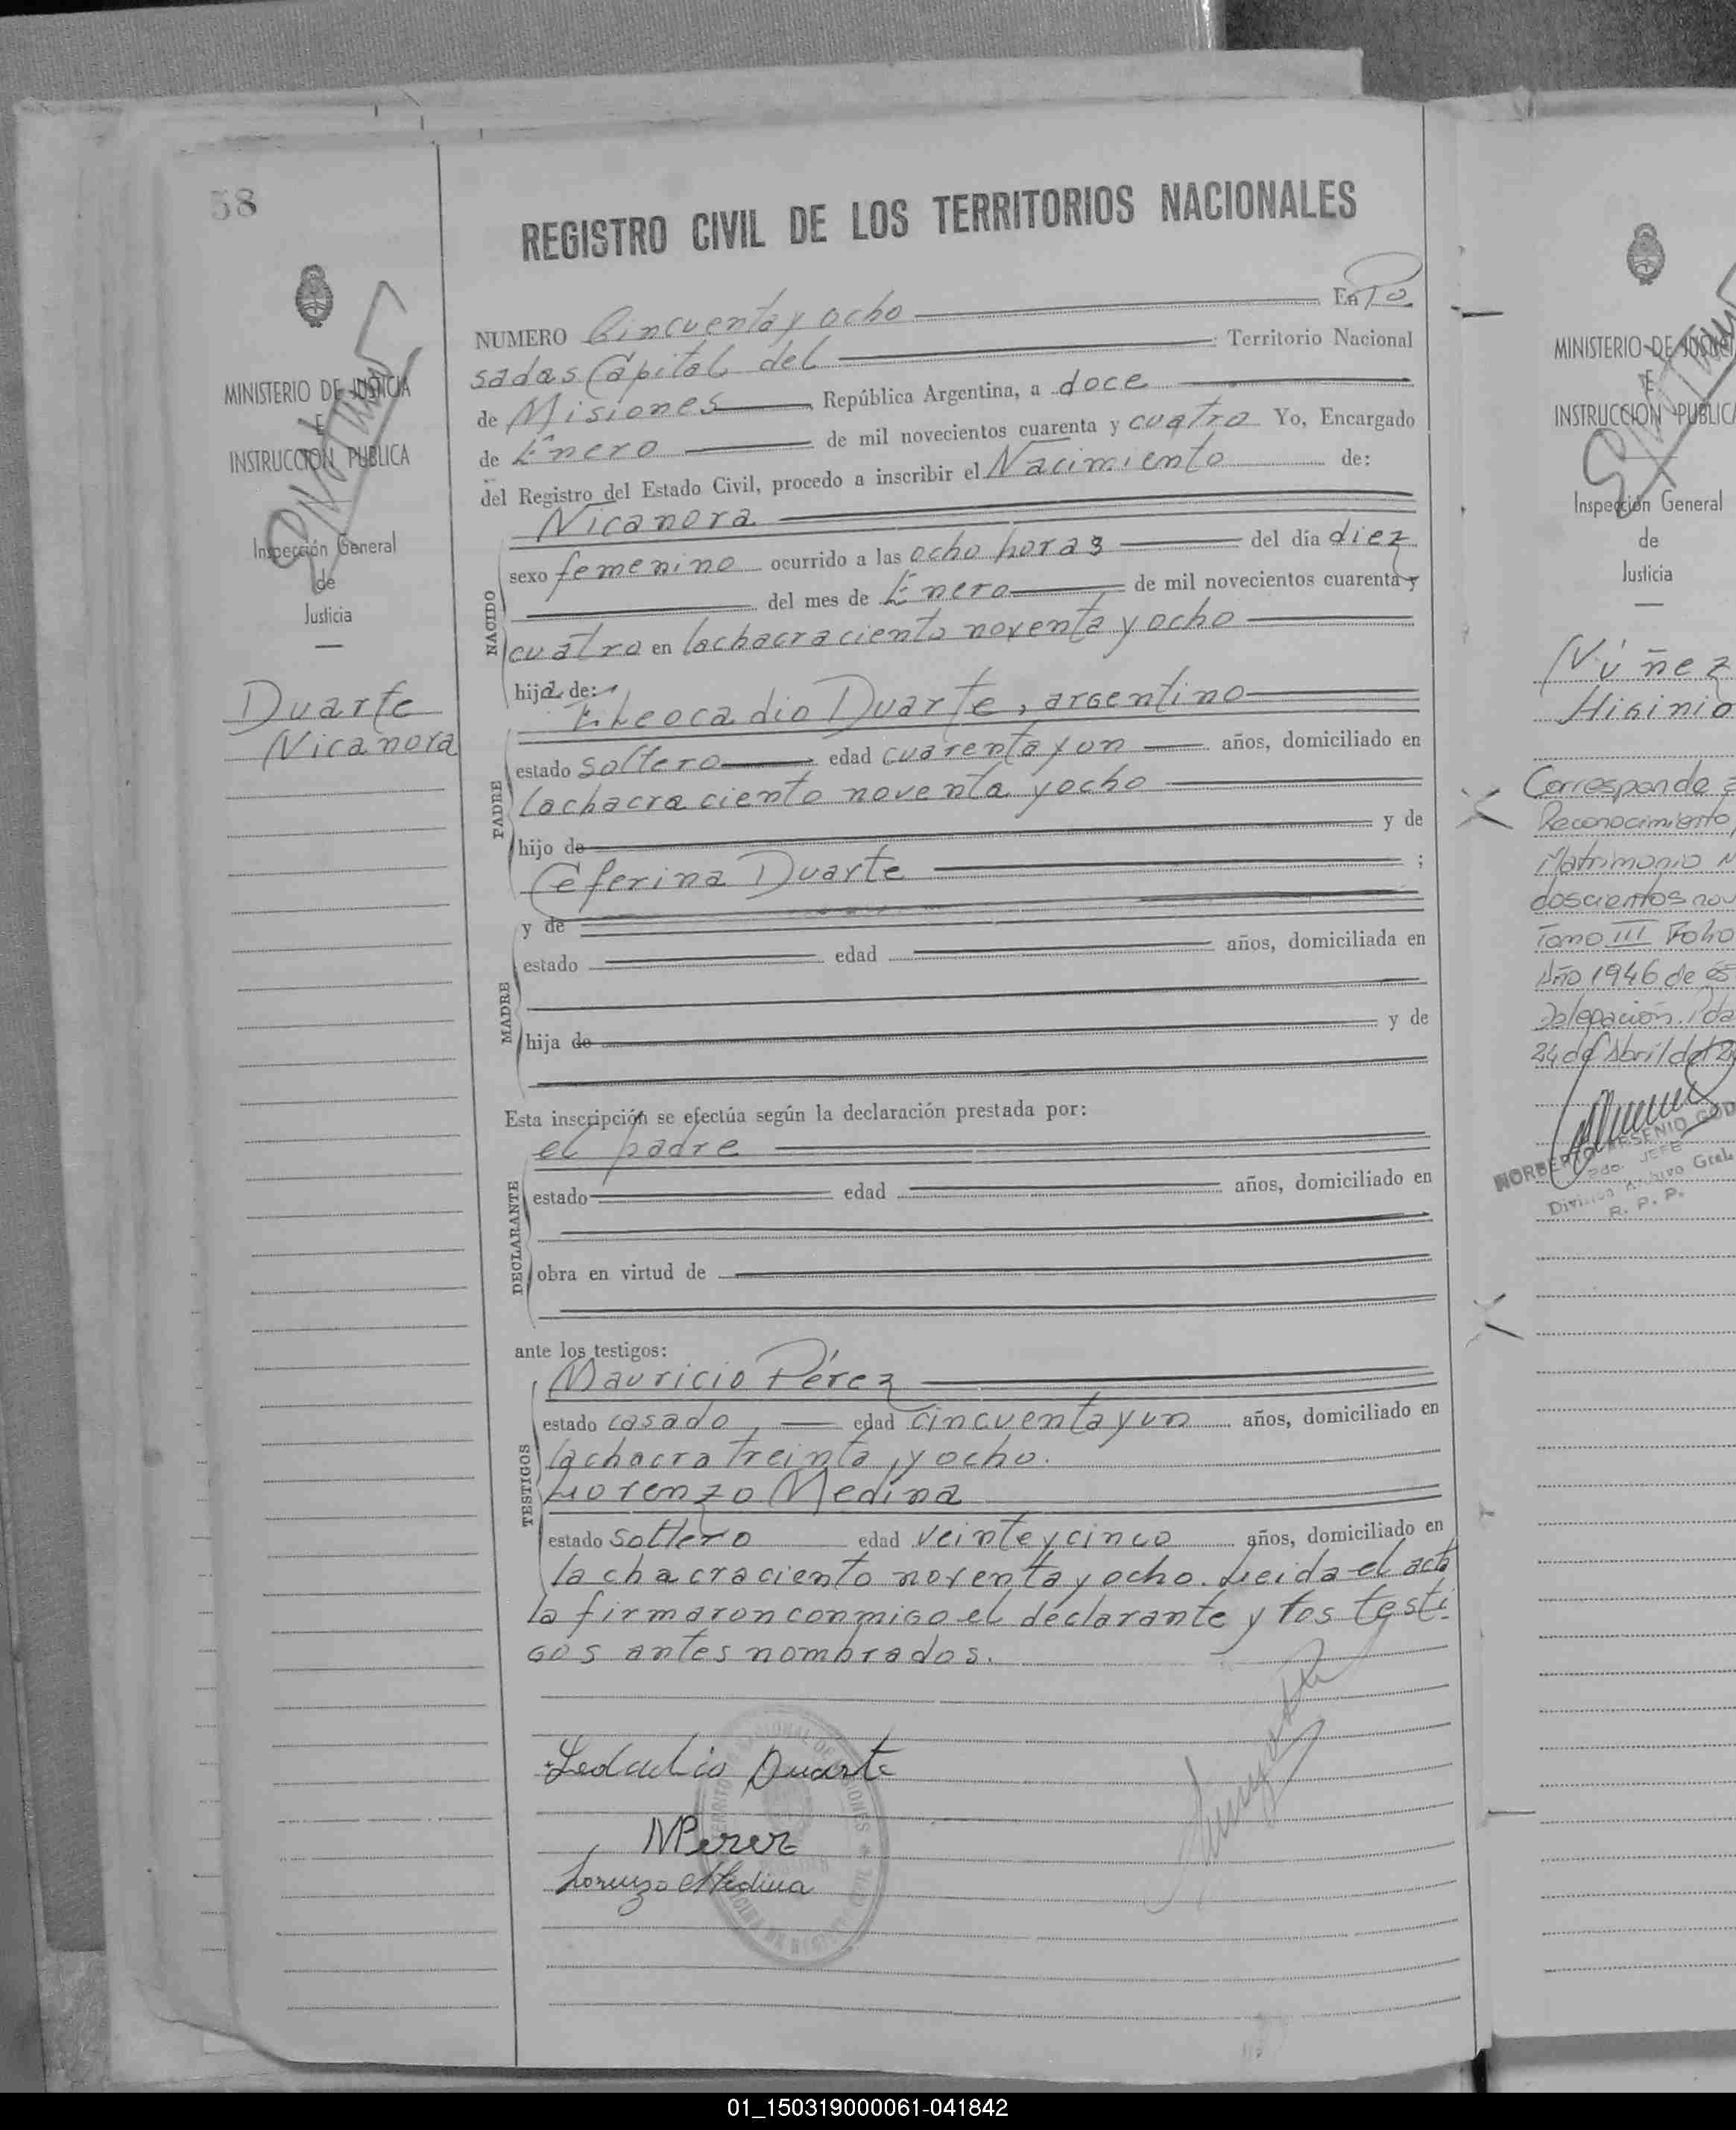 58
MINISTERIO DE JUSTICIA
E
INSTRUCCION PUBLICA
Inspección General
de
Justicia
Duarte
Nicanora
REGISTRO CIVIL DE LOS TERRITORIOS NACIONALES
NUMERO Cincuenta y ocho En Po
sadas Capital del Territorio Nacional
de Misiones República Argentina, a doce
de Enero de mil novecientos cuarenta y cuatro Yo, Encargado
del Registro del Estado Civil, procedo a inscribir el Nacimiento de:
Nicanora
NACIDO
sexo femenino ocurrido a las ocho horas del día diez
del mes de Enero de mil novecientos cuarenta y
cuatro en la chacra ciento noventa y ocho
hija de:
Leocadio Duarte, argentino
PADRE
estado soltero edad cuarenta y un años, domiciliado en
la chacra ciento noventa y ocho
hijo de y de
Ceferina Duarte ;
y de
MADRE
estado edad años, domiciliada en
hija de y de
Esta inscripción se efectúa según la declaración prestada por:
el padre
DECLARANTE
estado edad años, domiciliado en
obra en virtud de
ante los testigos:
Mauricio Pérez
TESTIGOS
estado casado, edad cincuenta y un años, domiciliado en
la chacra treinta y ocho.
Lorenzo Medina
estado soltero edad veinte y cinco años, domiciliado en
la chacra ciento noventa y ocho. Leida el acta
la firmaron conmigo el declarante y los testi-
gos antes nombrados.
Leocadio Duarte
MPerez
Lorenzo Medina
MINISTERIO DE JUSTICIA
E
INSTRUCCION PUBLICA
Inspección General
de
Justicia
Núñez
Higinio
Corresponde
Reconocimiento,
Matrimonio
doscientos nov
Tomo III Folio
Año 1946 de es
Delegación. Pda
24 de Abril del 2
NORBERTO ARSENIO GOD
2do. JEFE
División Archivo Gral.
R. P. P.
01_150319000061-041842